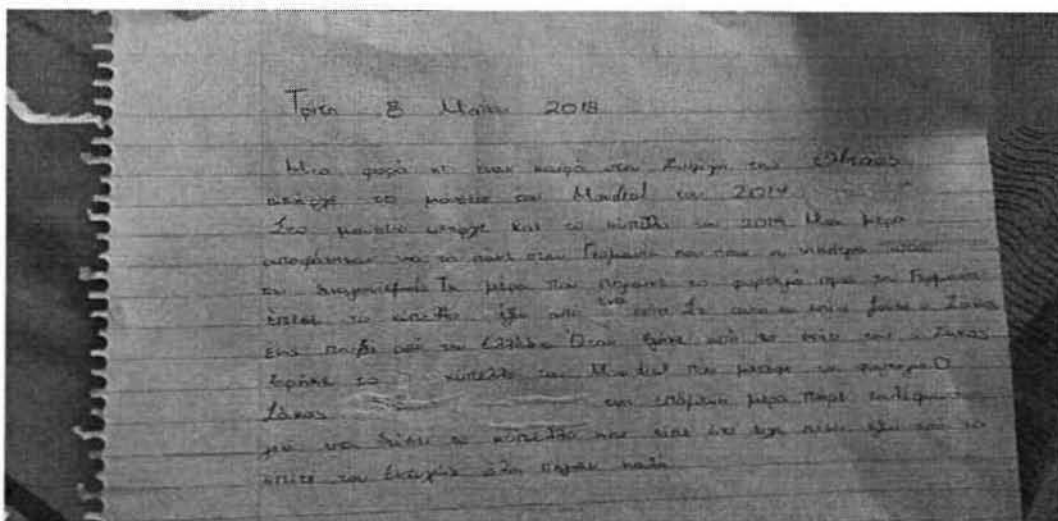 Τρίτη 8 Μαΐου 2018
Μια φορά κι έναν καιρό στην της
υπήρχε το μουσείο του Mundial του 2014
Στο μουσείο υπήρχε και το κύπελλο του 2014 Μια μέρα
αποφάσισαν να το πάνε στην Γερμανία που ήταν η νικήτρια
του διαγωνισμού Τη μέρα που πήγαινε το φορτηγό προς τη Γερμανία
έπεσε το κύπελλο έξω από ένα σπίτι Σε αυτό το σπίτι ο Σάκης
ένα παιδί από την Ελλάδα Όταν βγήκε από το σπίτι του ο Σάκης
βρήκε το κύπελλο του Mundial που το φορτηγό Ο
Σάκης την επόμενη μέρα πήρε τηλέφωνο
για να δώσει το κύπελλο και είπε ότι είχε πέσει έξω από το
σπίτι του όλα πήγαν καλά